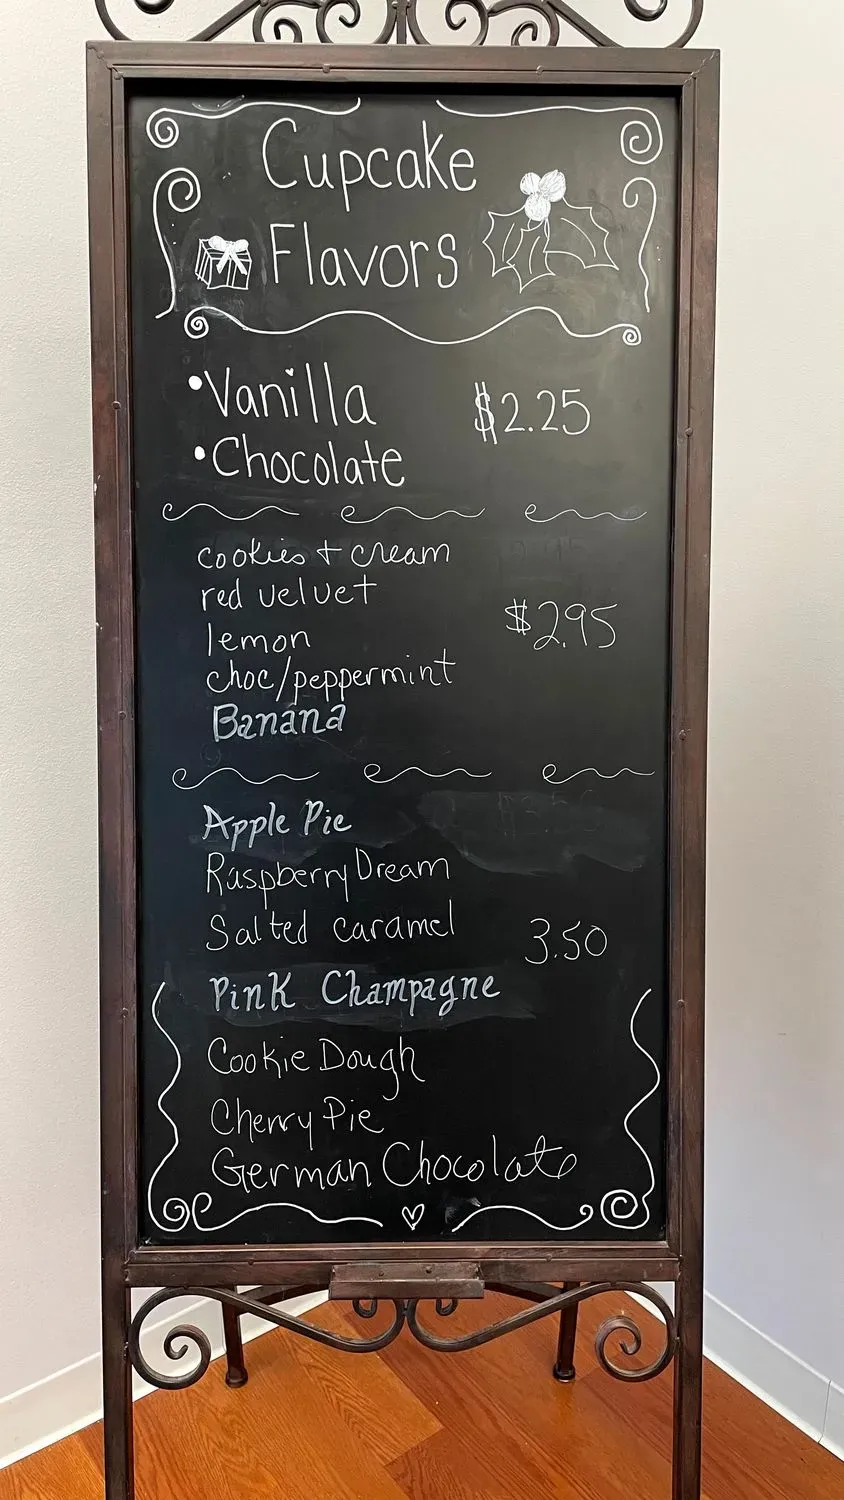 Cupcake
Flavors
•Vanilla
$2.25
•Chocolate
cookies + cream
red velvet
$2.95
lemon
choc/peppermint
Banana
Apple Pie
Raspberry Dream
Salted caramel
3.50
Pink Champagne
Cookie Dough
Cherry Pie
German Chocolate